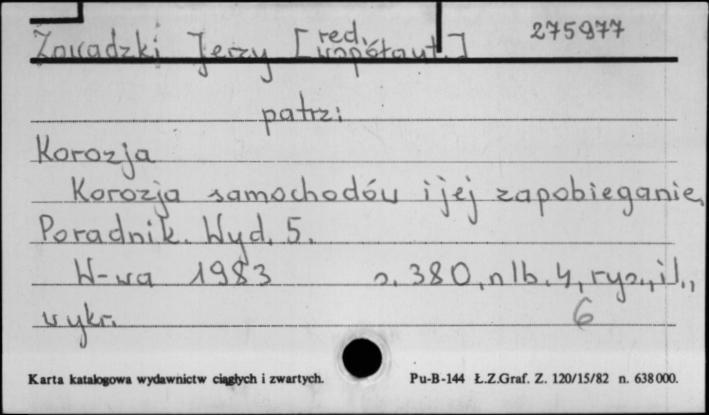 Zawadzki Jerzy [red., współaut.] 275977
patrz:
Korozja
Korozja samochodów i jej zapobieganie.
Poradnik. Wyd. 5.
W-wa 1983 s. 380, nlb. 4, rys., il.,
wykr. 6
Karta katalogowa wydawnictw ciągłych i zwartych. Pu-B-144 Ł.Z.Graf. Z. 120/15/82 n. 638000.